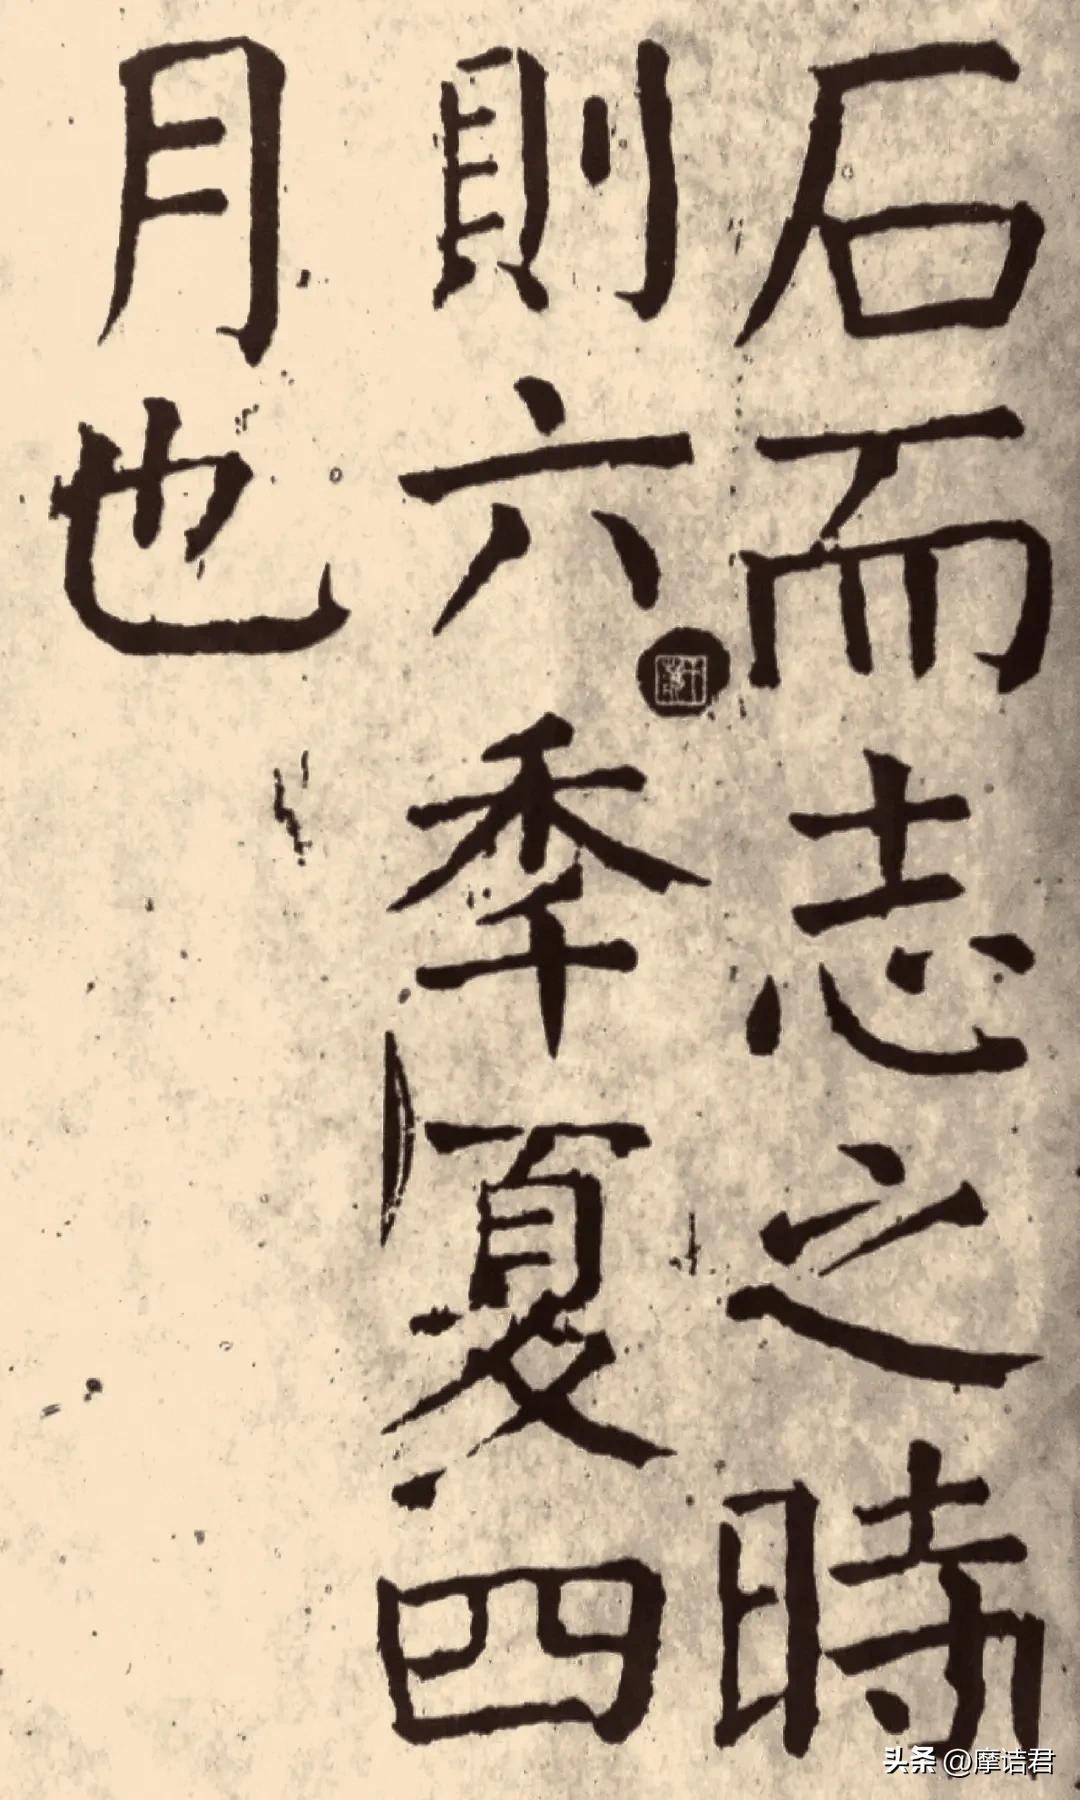 石而志之時
則六季夏四
月也
头条 @摩诘君